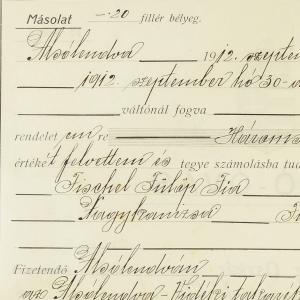 Másolat -.20 fillér bélyeg.
Alsólendva 1912. szeptem
1912. szeptember hó 30-
váltónál fogva
rendelet em re Három
értéket felvettem és tegye számolásba tud
Fischel Fülöp Fia
Nagykanizsa
Fizetendő Alsólendván
az Alsólendva-Vidéki takaré